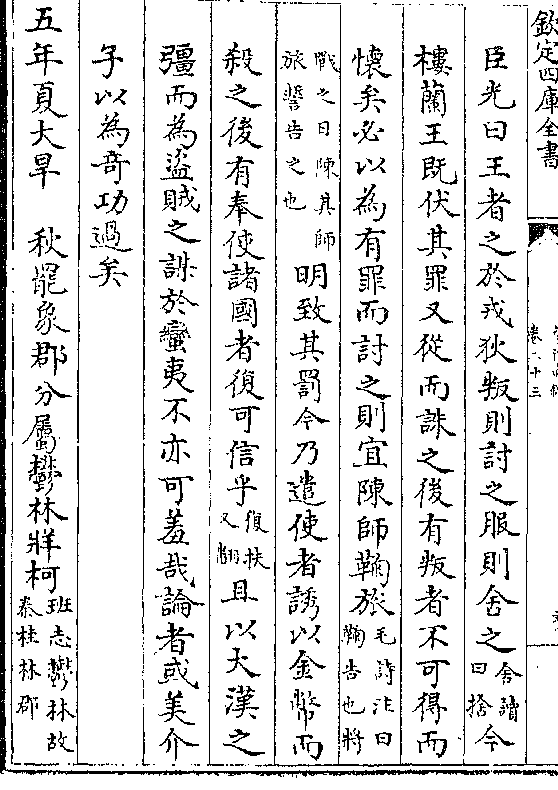 欽定四庫全書
卷二十三
臣光曰王者之於戎狄叛則討之服則舍之舍讀曰捨今
樓蘭王既伏其罪又從而誅之後有叛者不可得而
懷矣必以為有罪而討之則宜陳師鞠旅毛詩注曰鞠告也將
戰之日陳其師旅誓告之也明致其罰今乃遣使者誘以金幣而
殺之後有奉使諸國者復可信乎復扶又翻且以大漢之
彊而為盜賊之謀於蠻夷不亦可羞哉論者或美介
子以為竒功過矣
五年夏大旱　秋罷象郡分屬鬱林牂柯班志鬱林故秦桂林郡